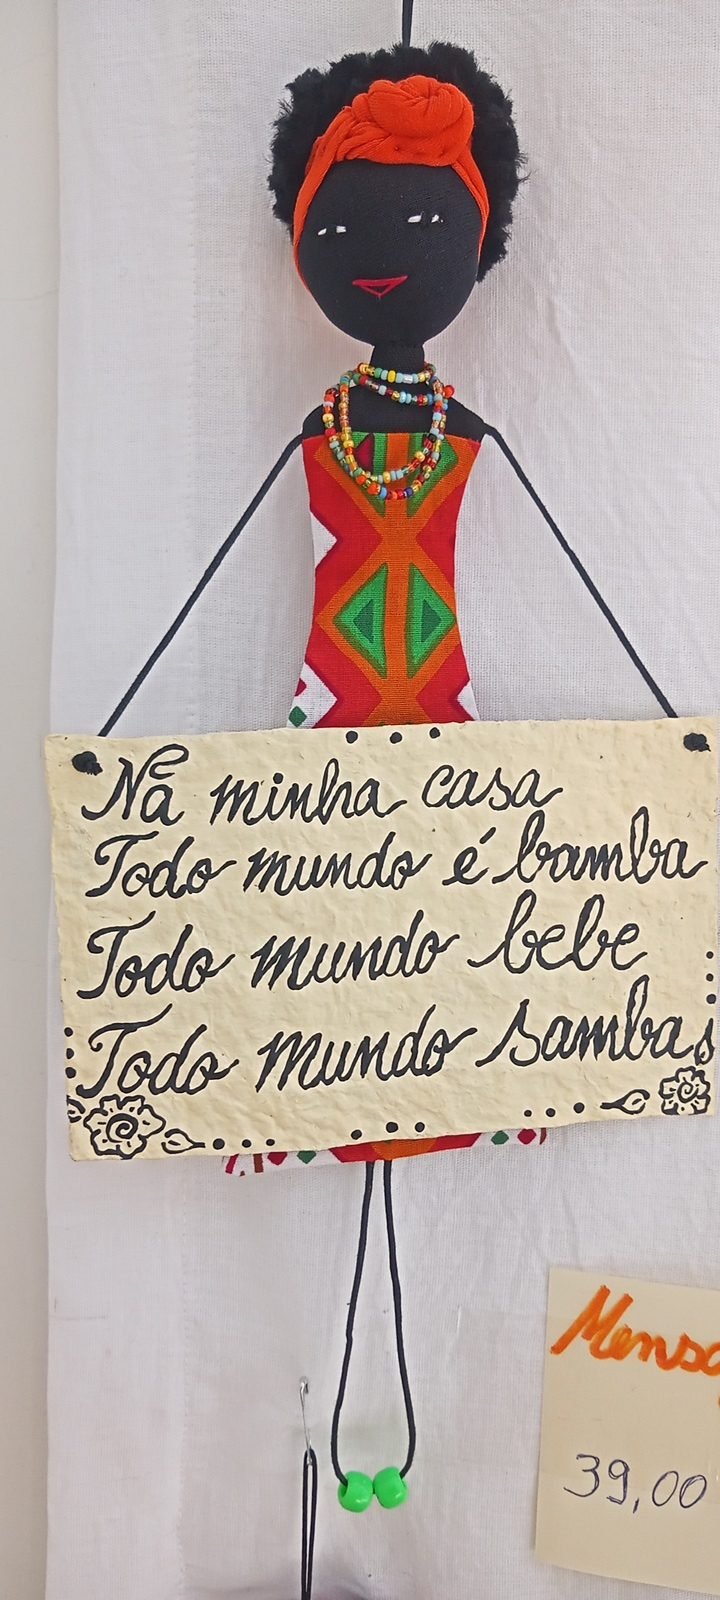 Na minha casa
Todo mundo é bamba
Todo mundo bebe
Todo mundo samba
39,00